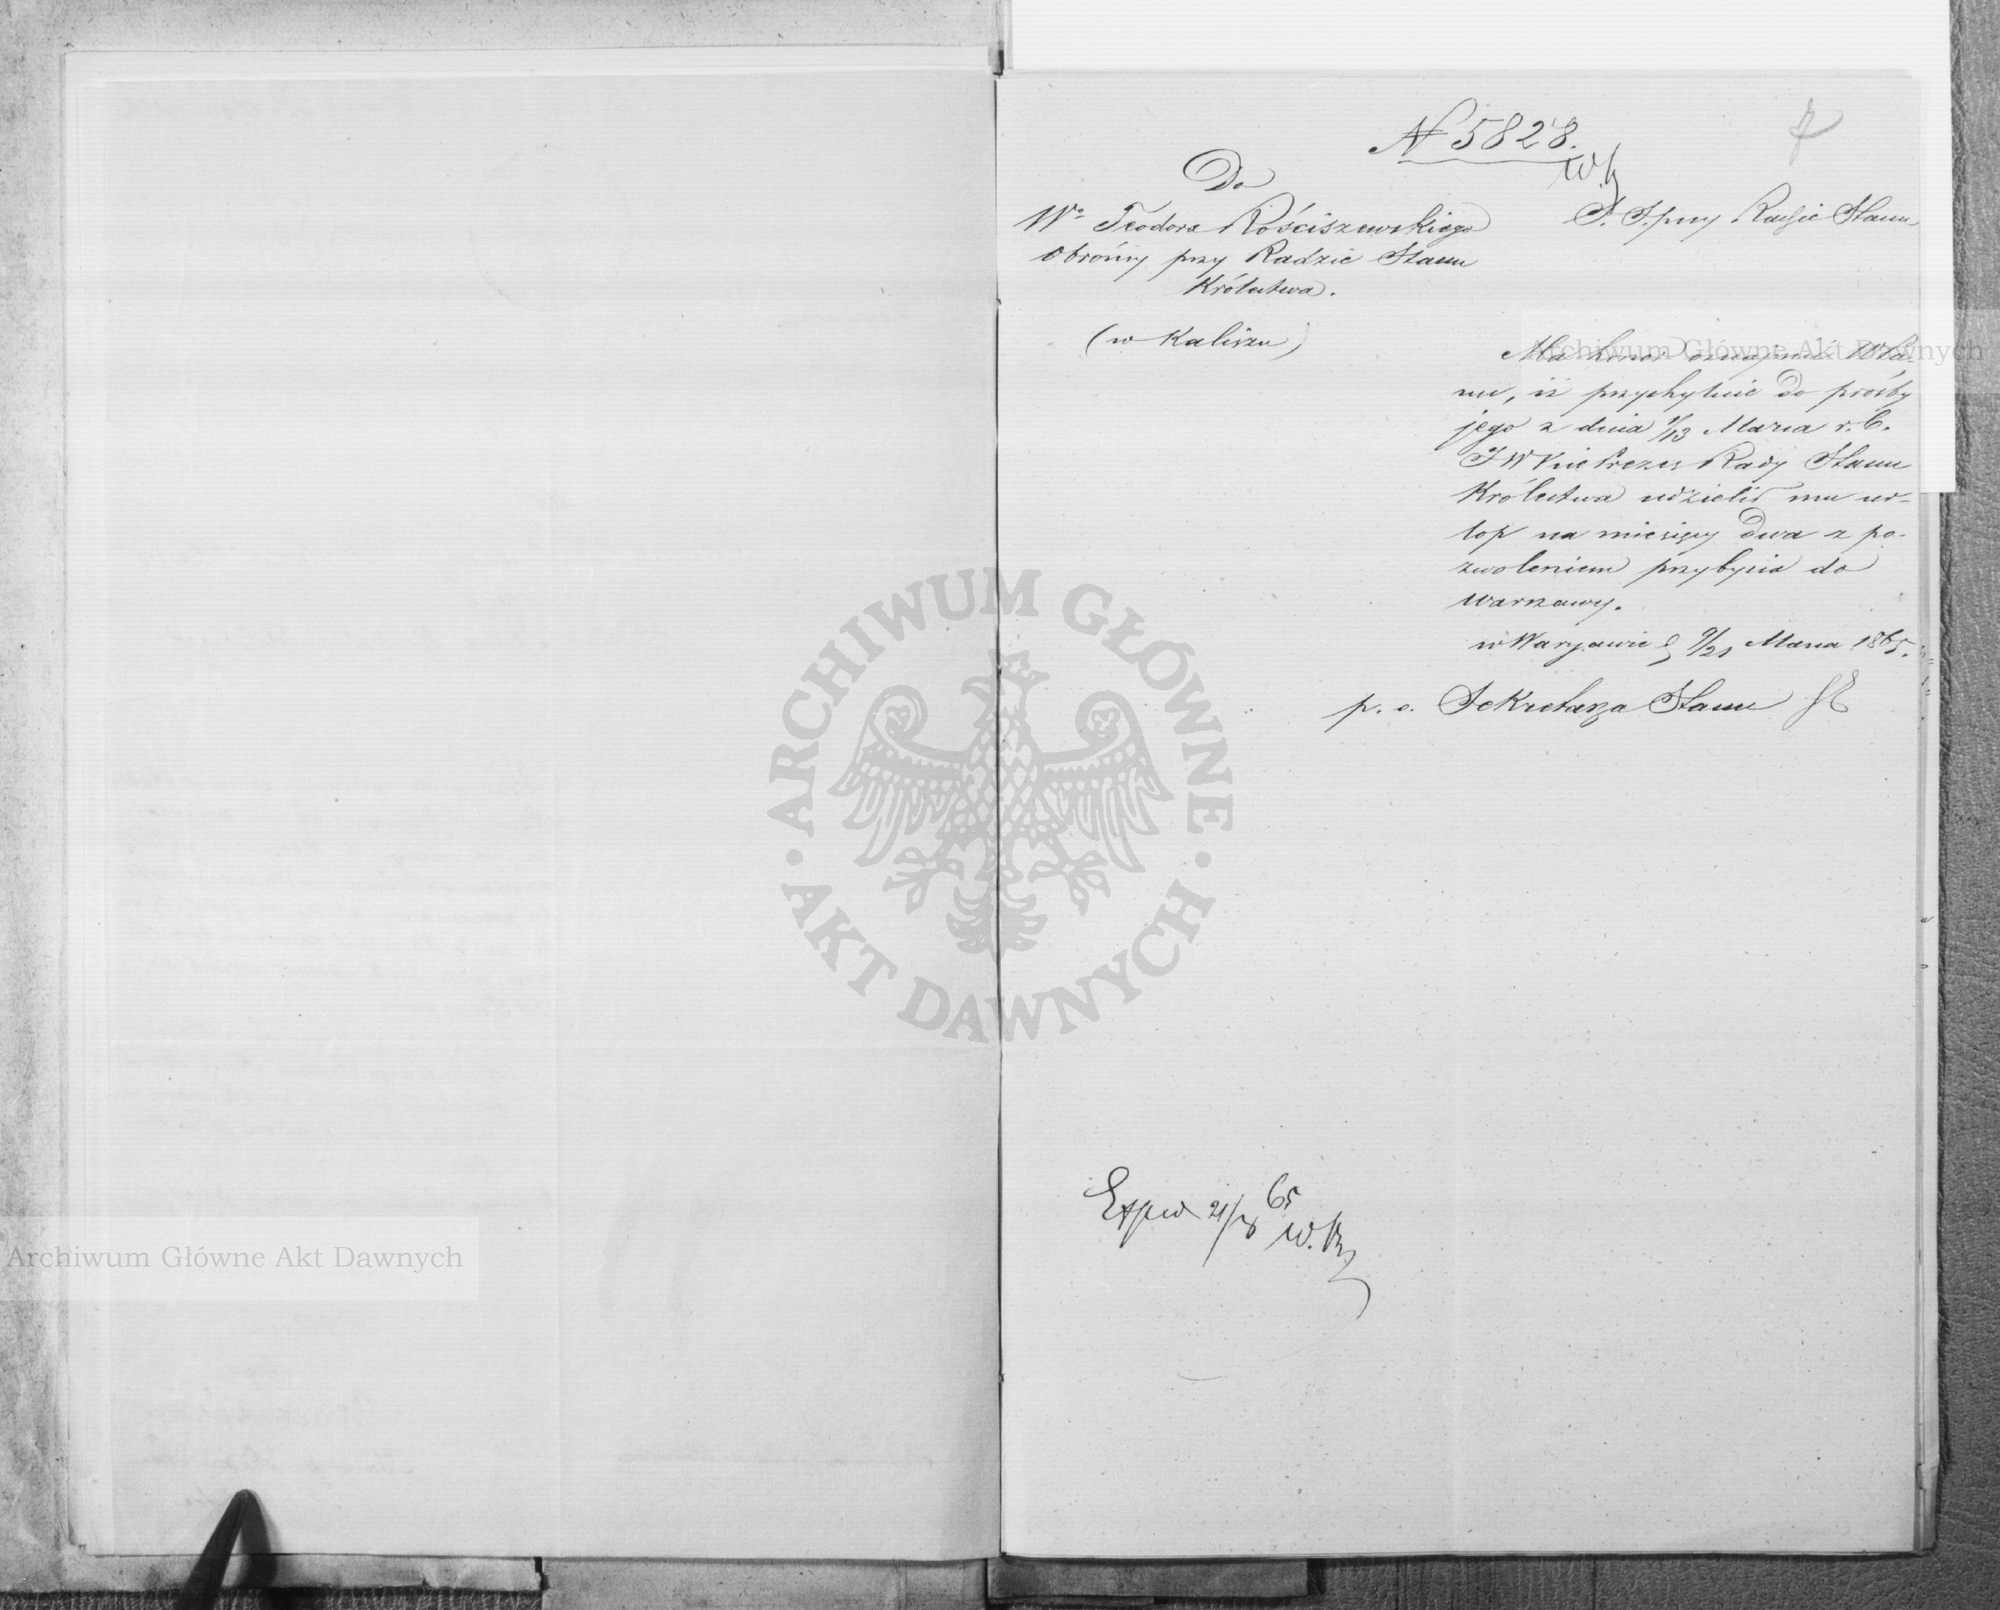 7
N 5828.
W.K
Do
Wo Teodora Rościszewskiego
Obrońcy przy Radzie Stanu
Królestwa.
(w Kaliszu)
S. S. przy Radzie Stanu
Ma honor oznajmić WPa-
nu, iż przychylnie do prośby
jego z dnia 1/13 Marca r. b.
JW Vice Prezes Rady Stanu
Królestwa udzielił mu ur-
lop na miesięcy dwa z po-
zwoleniem przybycia do
Warszawy.
w Warszawie d 9/21 Marca 1865.
p. o. Sekretarza Stanu
65
W.K
ARCHIWUM GŁÓWNE · AKT DAWNYCH ·
Archiwum Główne Akt Dawnych
Archiwum Główne Akt Dawnych